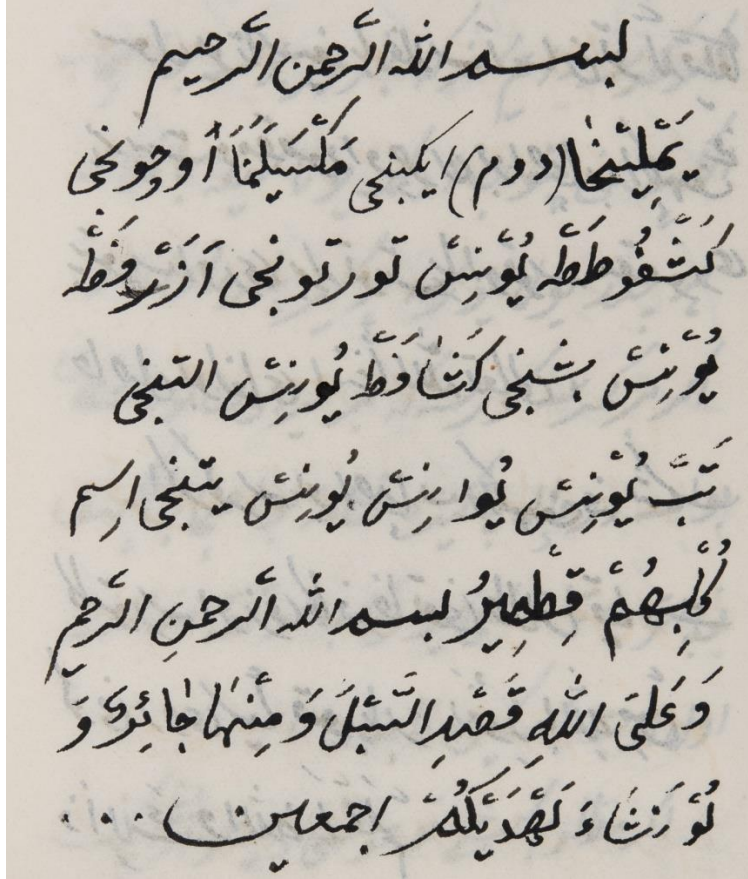 بسم الله الرحمن الرحيم
يَمْلِيْخَا (دوم) ايكنجى مَكْسَيلَمْنَا اوچونجى
كَشْفُوطَطْ يُوْنِسْ تورتونجى اَزَرْفَطْ
يُوْنِسْ بشنجى كَشَافَطَ يُورنِسْ التنجى
تَبْ يُوْنِسْ يُوانِسْ يُونِسْ يتنجى اِسم
كَلْبِهُمْ قِطْمِيرُ بسم الله الرحمنِ الرحيم
وَعَلىَ اللهِ قَصْدِ السَّبِلَ وَمِنْهَا جَائِرٌ وَ
لَوْ شَاءَ لَهَدَيكُمْ اجمعين ...